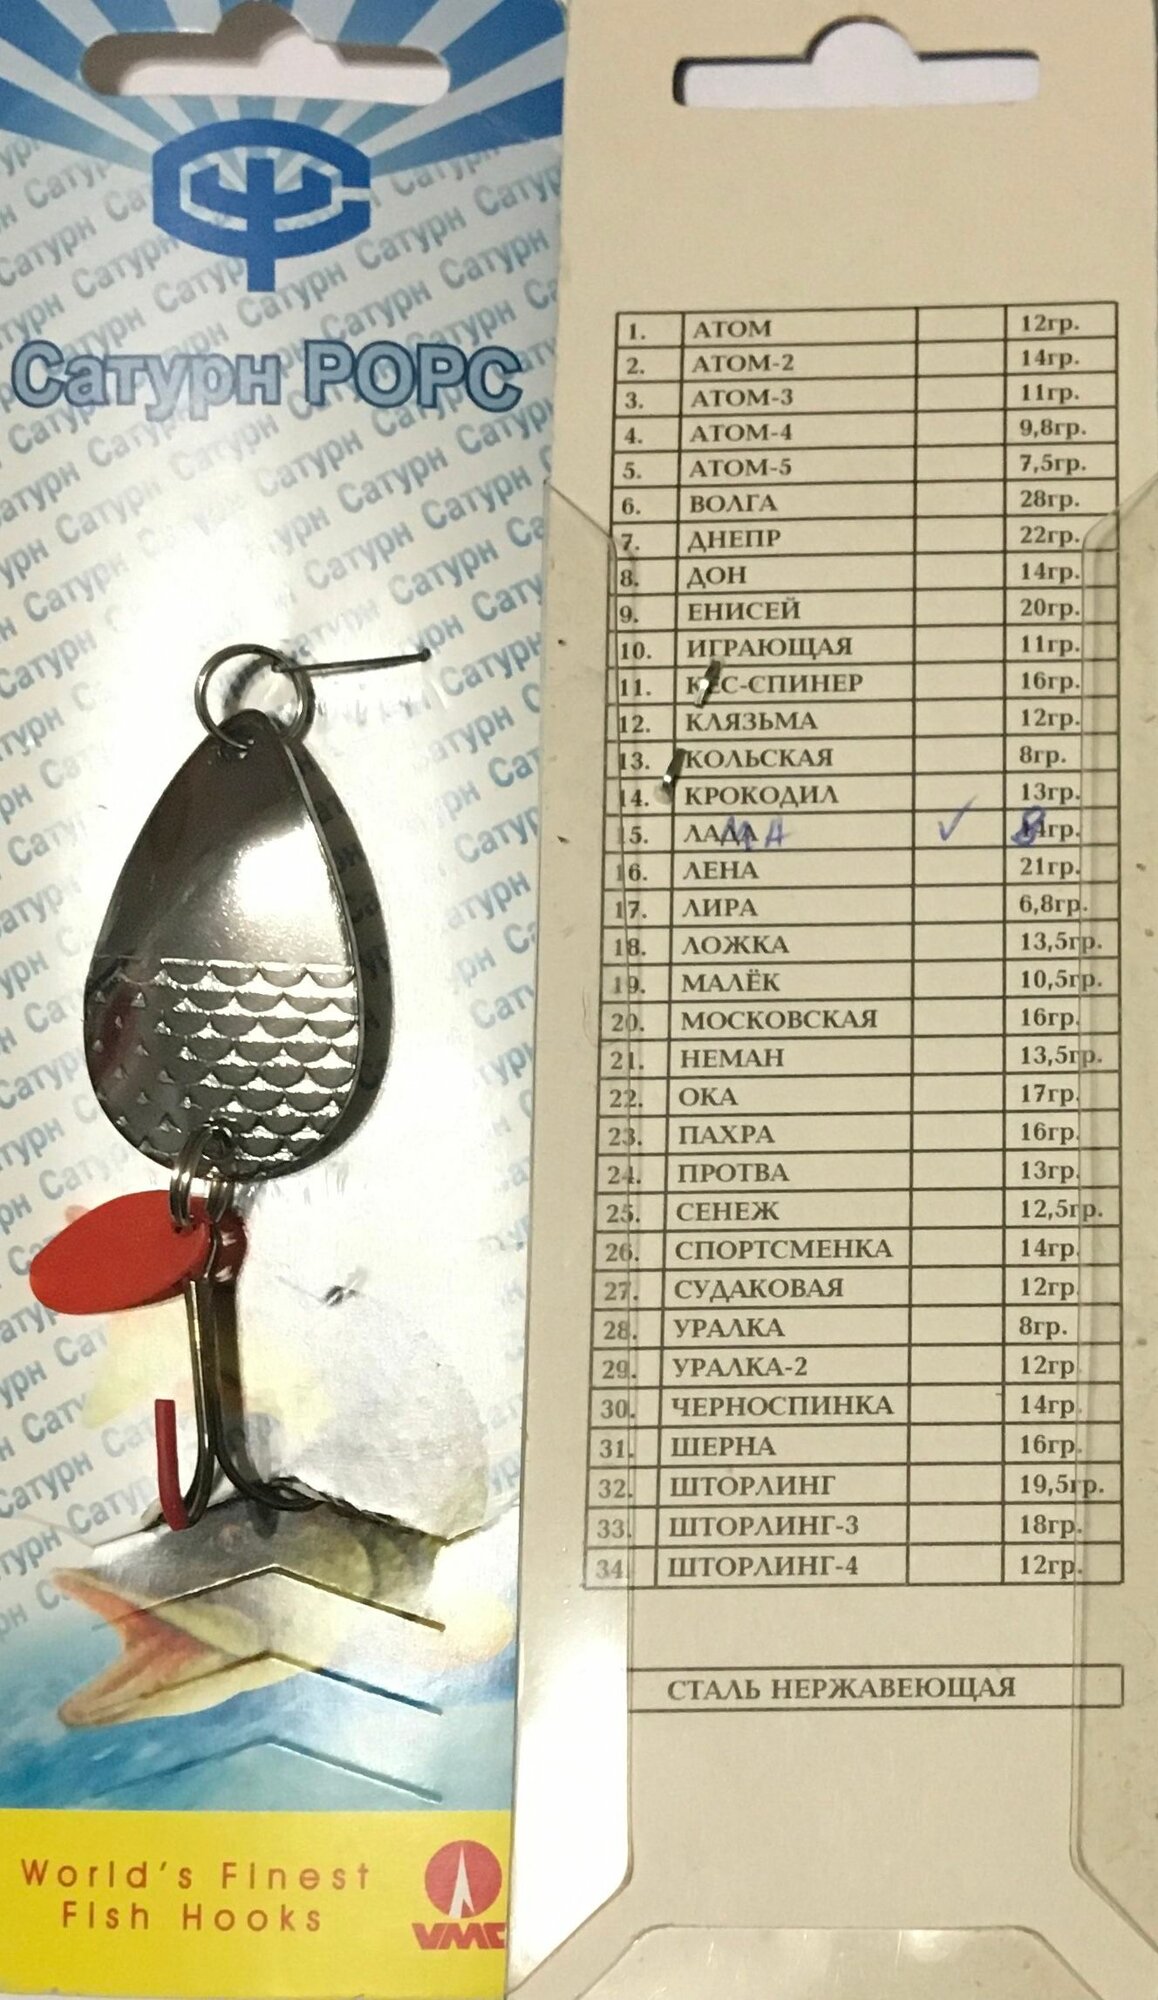 Сатурн РОРС
World's Finest
Fish Hooks
VMC
1. АТОМ 12гр.
2. АТОМ-2 14гр.
3. АТОМ-3 11гр.
4. АТОМ-4 9,8гр.
5. АТОМ-5 7,5гр.
6. ВОЛГА 28гр.
7. ДНЕПР 22гр.
8. ДОН 14гр.
9. ЕНИСЕЙ 20гр.
10. ИГРАЮЩАЯ 11гр.
11. КЕС-СПИНЕР 16гр.
12. КЛЯЗЬМА 12гр.
13. КОЛЬСКАЯ 8гр.
14. КРОКОДИЛ 13гр.
15. ЛАДА ✓ гр.
16. ЛЕНА 21гр.
17. ЛИРА 6,8гр.
18. ЛОЖКА 13,5гр.
19. МАЛЁК 10,5гр.
20. МОСКОВСКАЯ 16гр.
21. НЕМАН 13,5гр.
22. ОКА 17гр.
23. ПАХРА 16гр.
24. ПРОТВА 13гр.
25. СЕНЕЖ 12,5гр.
26. СПОРТСМЕНКА 14гр.
27. СУДАКОВАЯ 12гр.
28. УРАЛКА 8гр.
29. УРАЛКА-2 12гр.
30. ЧЕРНОСПИНКА 14гр.
31. ШЕРНА 16гр.
32. ШТОРЛИНГ 19,5гр.
33. ШТОРЛИНГ-3 18гр.
34. ШТОРЛИНГ-4 12гр.
СТАЛЬ НЕРЖАВЕЮЩАЯ